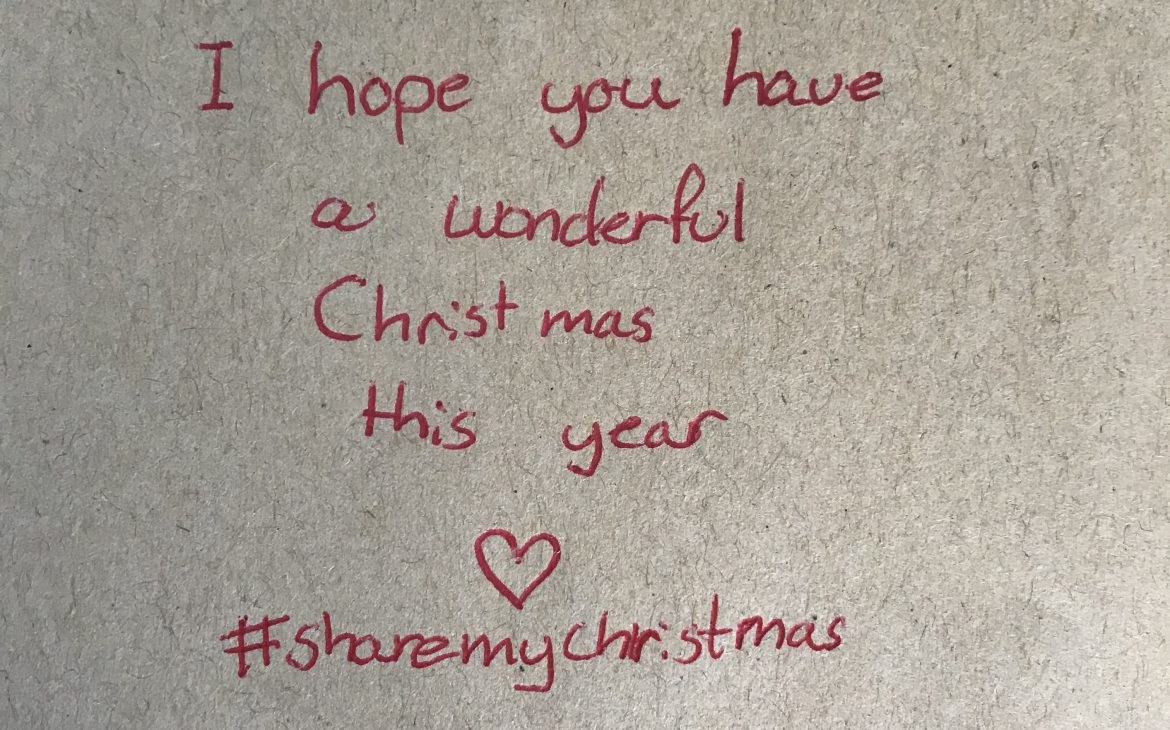 I hope you have
a wonderful
Christmas
this year
#sharemychristmas